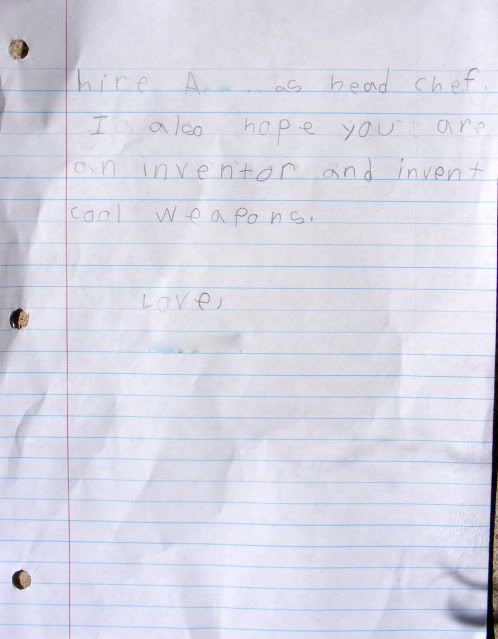 hire A as head chef.
I also hope you are
an inventor and invent
cool weapons.
Love,